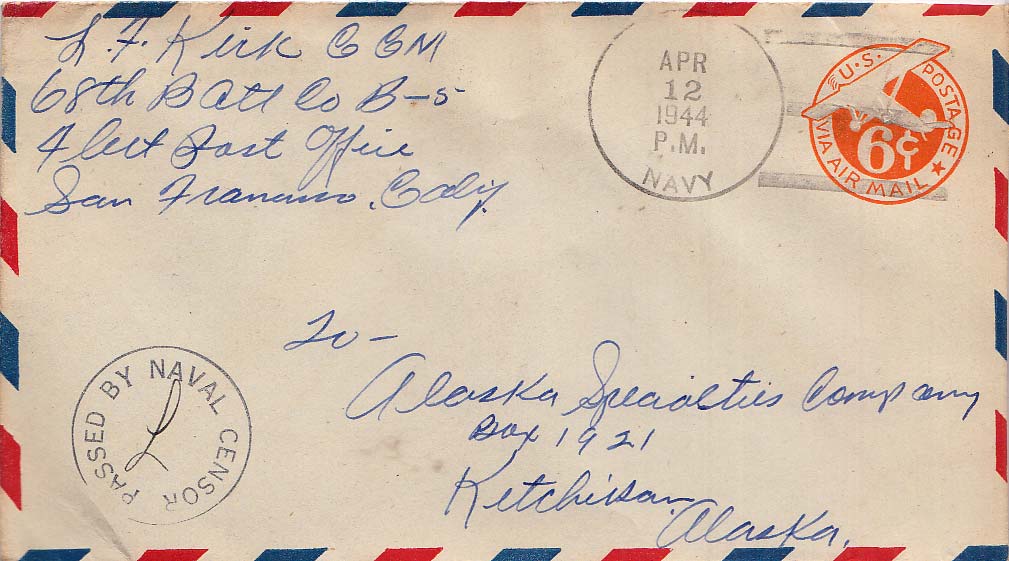 L. F. Kirk CCM
68th Batt Co B-5
Fleet Post Office
San Francisco, Calif.
APR
12
1944
P.M.
NAVY
U.S. POSTAGE
6¢
VIA AIR MAIL
To-
Alaska Specialties Company
Box 1921
Ketchikan
Alaska.
PASSED BY NAVAL CENSOR